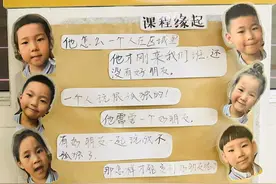 课程缘起
他怎么一个人在区域里
他才刚来我们班,还
没有好朋友。
一个人说很孤独的!
他需要一个好朋友。
有好朋友一起玩就不
孤独了
那怎样才能